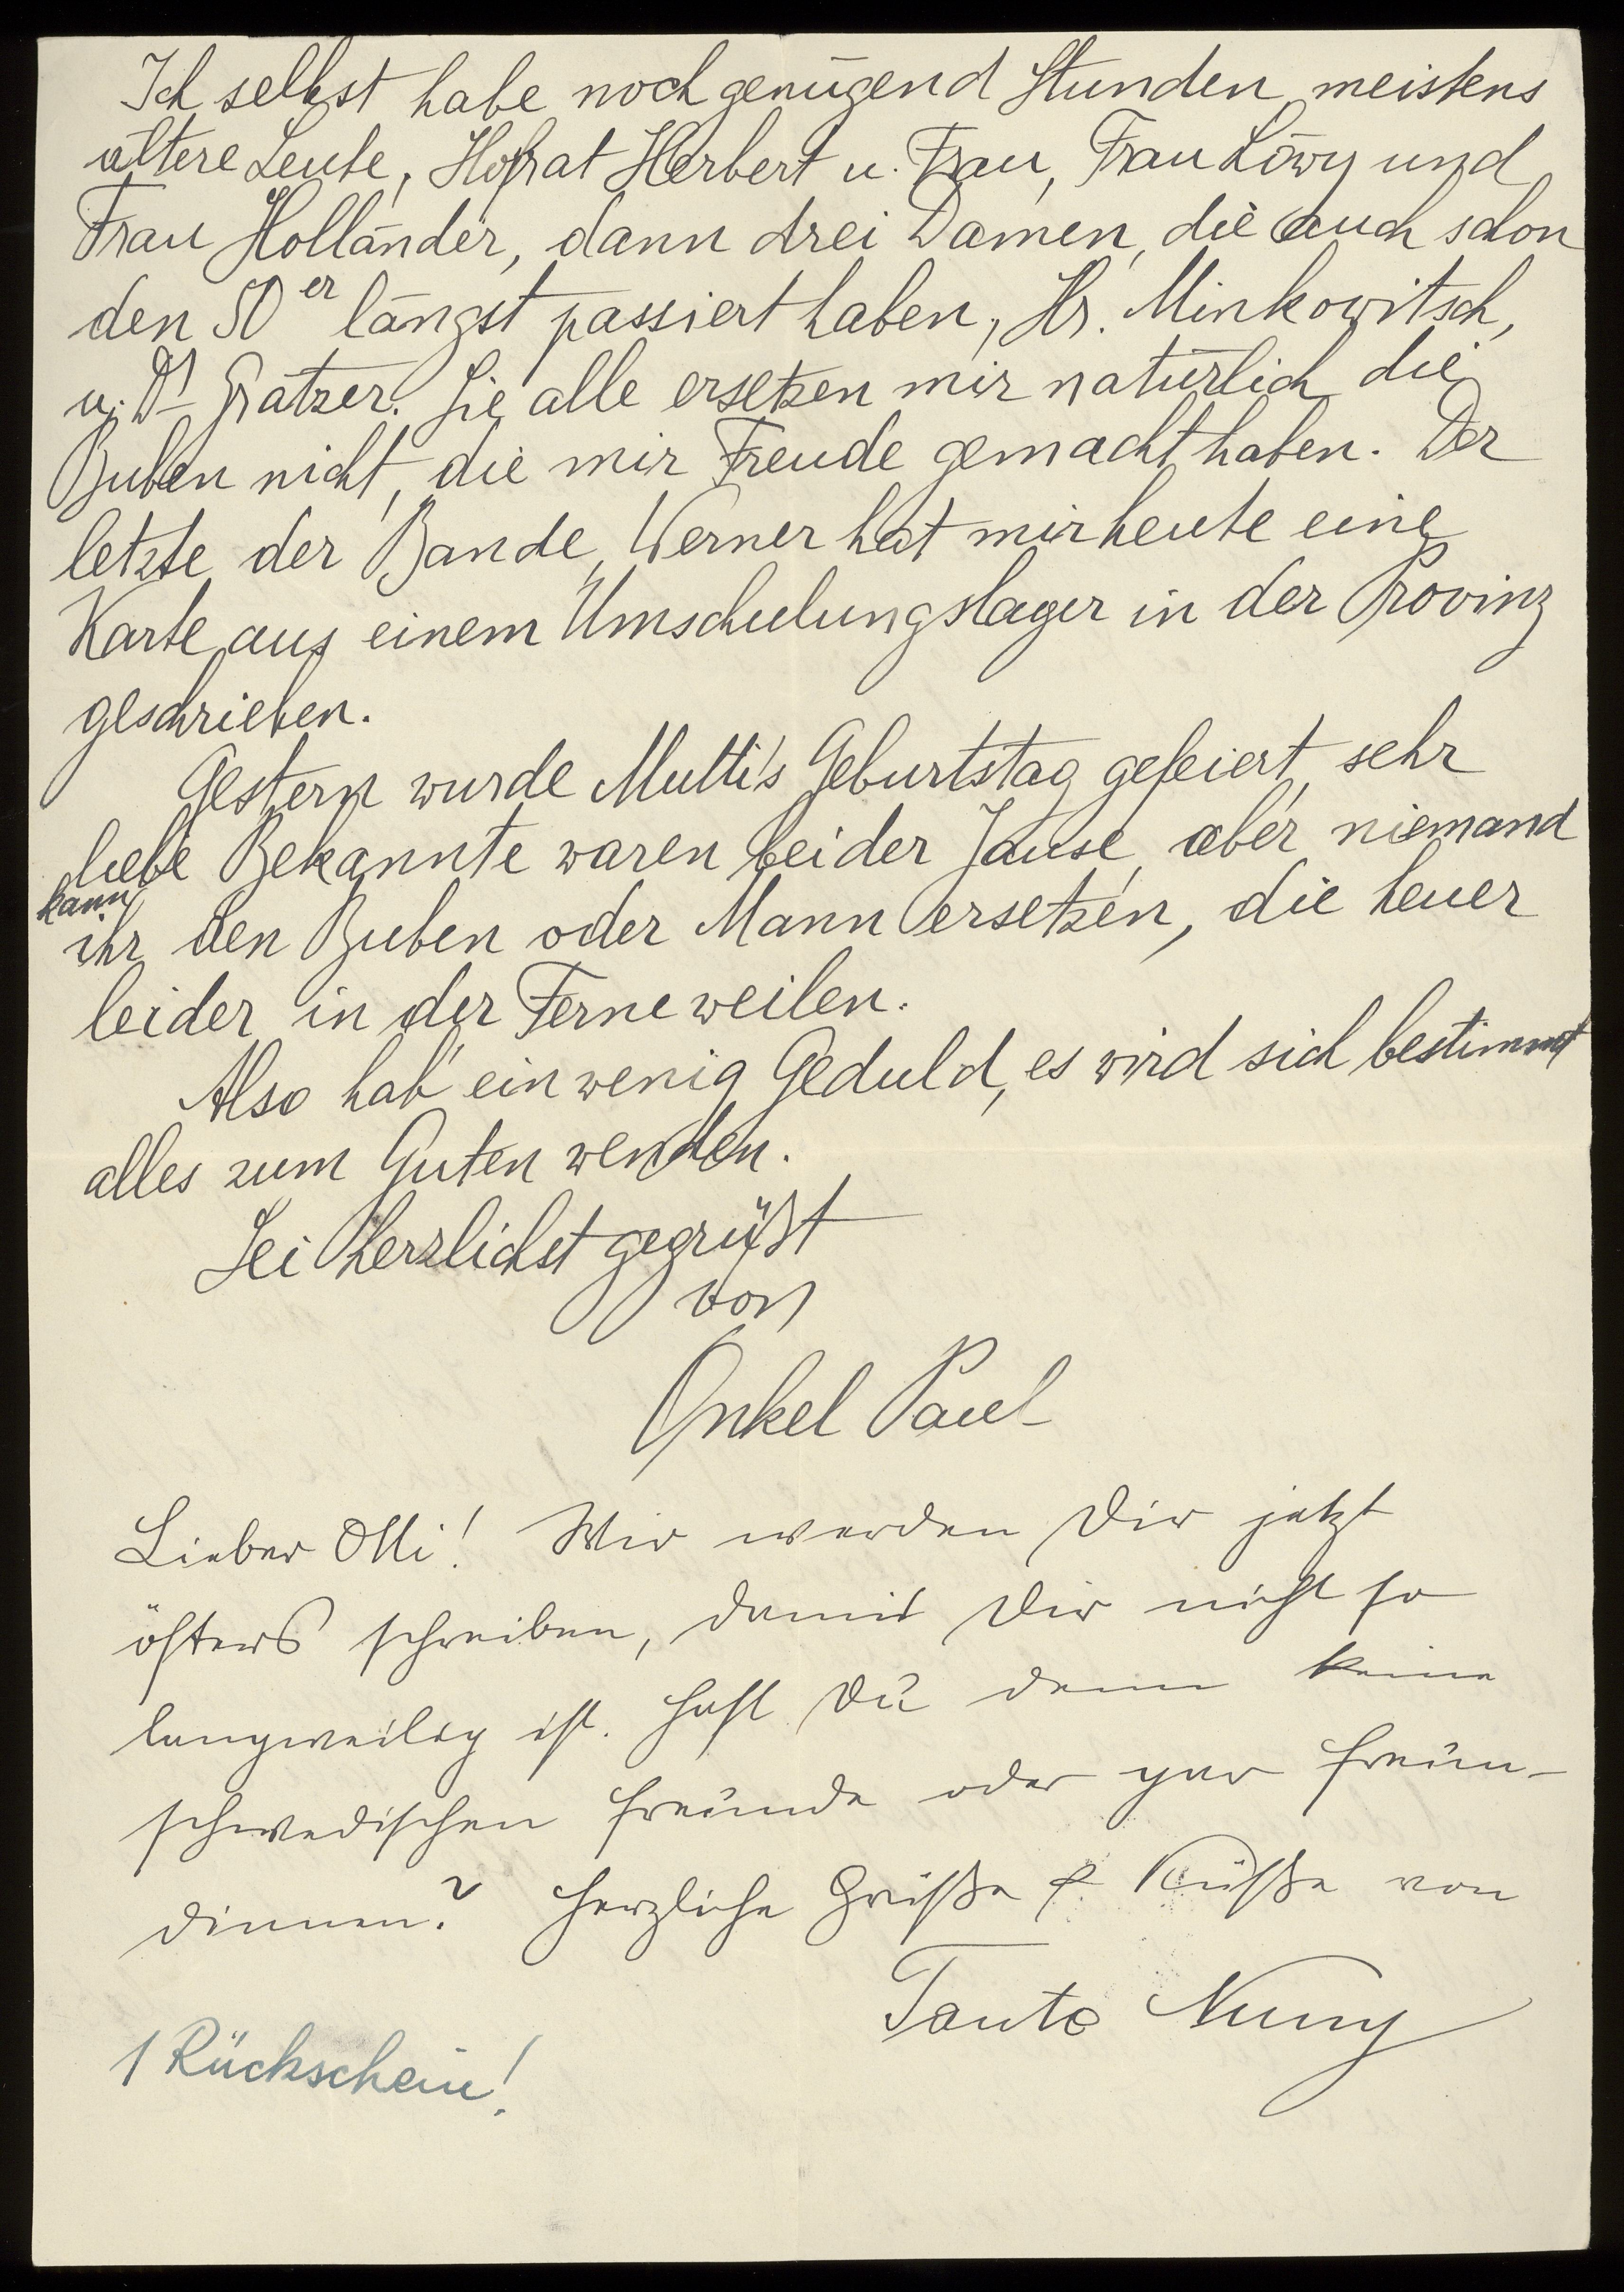 Ich selbst habe noch genügend Stunden, meistens
ältere Leute, Hofrat Herbert u. Frau, Frau Löwy und
Frau Holländer, dann drei Damen, die auch schon
den 50er längst passiert haben, Hr. Minkowitsch,
u. Dr Grätzer. Sie alle ersetzen mir natürlich die
Buben nicht, die mir Freude gemacht haben. Der
letzte der Bande, Werner hat mir heute eine
Karte aus einem Umschulungslager in der Provinz
geschrieben.
Gestern wurde Mutti's Geburtstag gefeiert, sehr
liebe Bekannte waren bei der Jause, aber niemand
kann
ihr den Buben oder Mann ersetzen, die heuer
leider in der Ferne weilen.
Also hab' ein wenig Geduld, es wird sich bestimmt
alles zum Guten wenden.
Sei herzlichst gegrüßt
von
Onkel Paul
Lieber Otti! Wir werden Dir jetzt
öfters schreiben, damit Dir nicht so
langweilig ist. Hast Du denn keine
schwedischen Freunde oder gar Freun-
dinnen? Herzliche Grüße & Küße von
Tante Nuny
1 Rückschein!